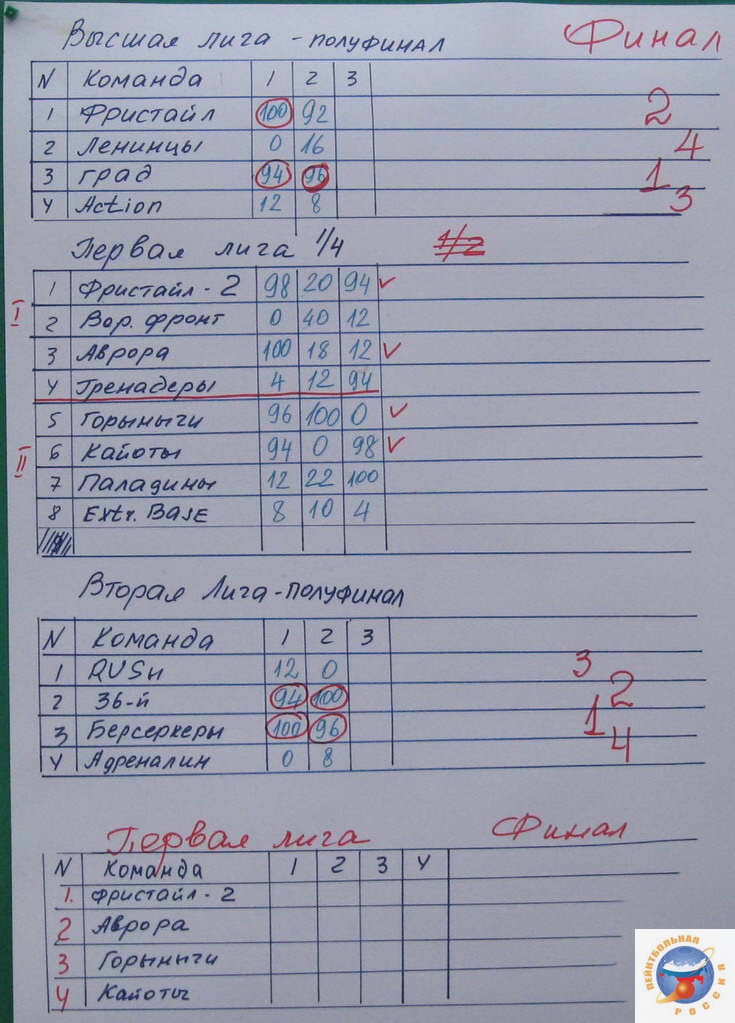 Высшая лига - полуфинал Финал
N Команда 1 2 3
1 Фристайл 100 92 2
2 Ленинцы 0 16 4
3 град 94 96 1
4 Action 12 8 3
Первая лига 1/4 1/2
1 Фристайл - 2 98 20 94 ✓
I
2 Вор. фронт 0 40 12
3 Аврора 100 18 12 ✓
4 Гренадеры 4 12 94
5 Горынычи 96 100 0 ✓
6 Кайоты 94 0 98 ✓
II
7 Паладины 12 22 100
8 Extr. Base 8 10 4
Вторая Лига - полуфинал
N Команда 1 2 3
1 RUSH 12 0 3
2 36-й 94 100 2
3 Берсеркеры 100 96 1
4 Адреналин 0 8 4
Первая лига Финал
N Команда 1 2 3 4
1. Фристайл - 2
2 Аврора
3 Горынычи
4 Кайоты
ПЕЙНТБОЛЬНАЯ РОССИЯ